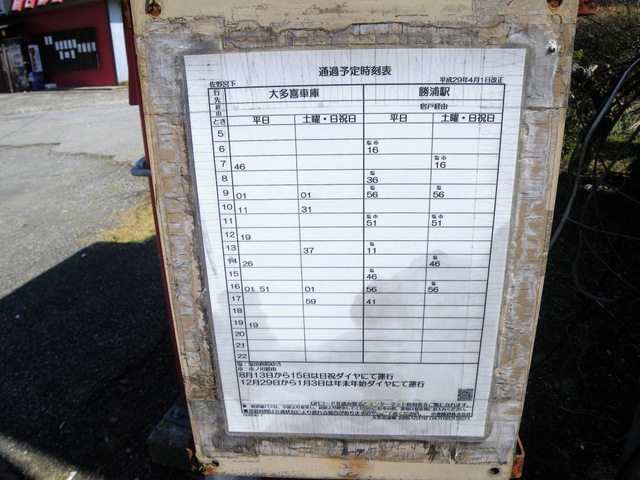 通過予定時刻表
佐野宮下 平成29年4月1日改正
行先 大多喜車庫 勝浦駅
経由
とき 平日 土曜・日祝日 平日 土曜・日祝日
5
6 塩市16
7 46 塩市16
8 塩36
9 01 01 塩56 塩56
10 11 31
11 塩市51 塩市51
12 19
13 37 塩11
14 26 塩46
15 塩46
16 01 51 01 塩56 塩56
17 59 41
18
19 19
20
21
22
8月13日から15日は日祝ダイヤにて運行
12月29日から1月3日は年末年始ダイヤにて運行